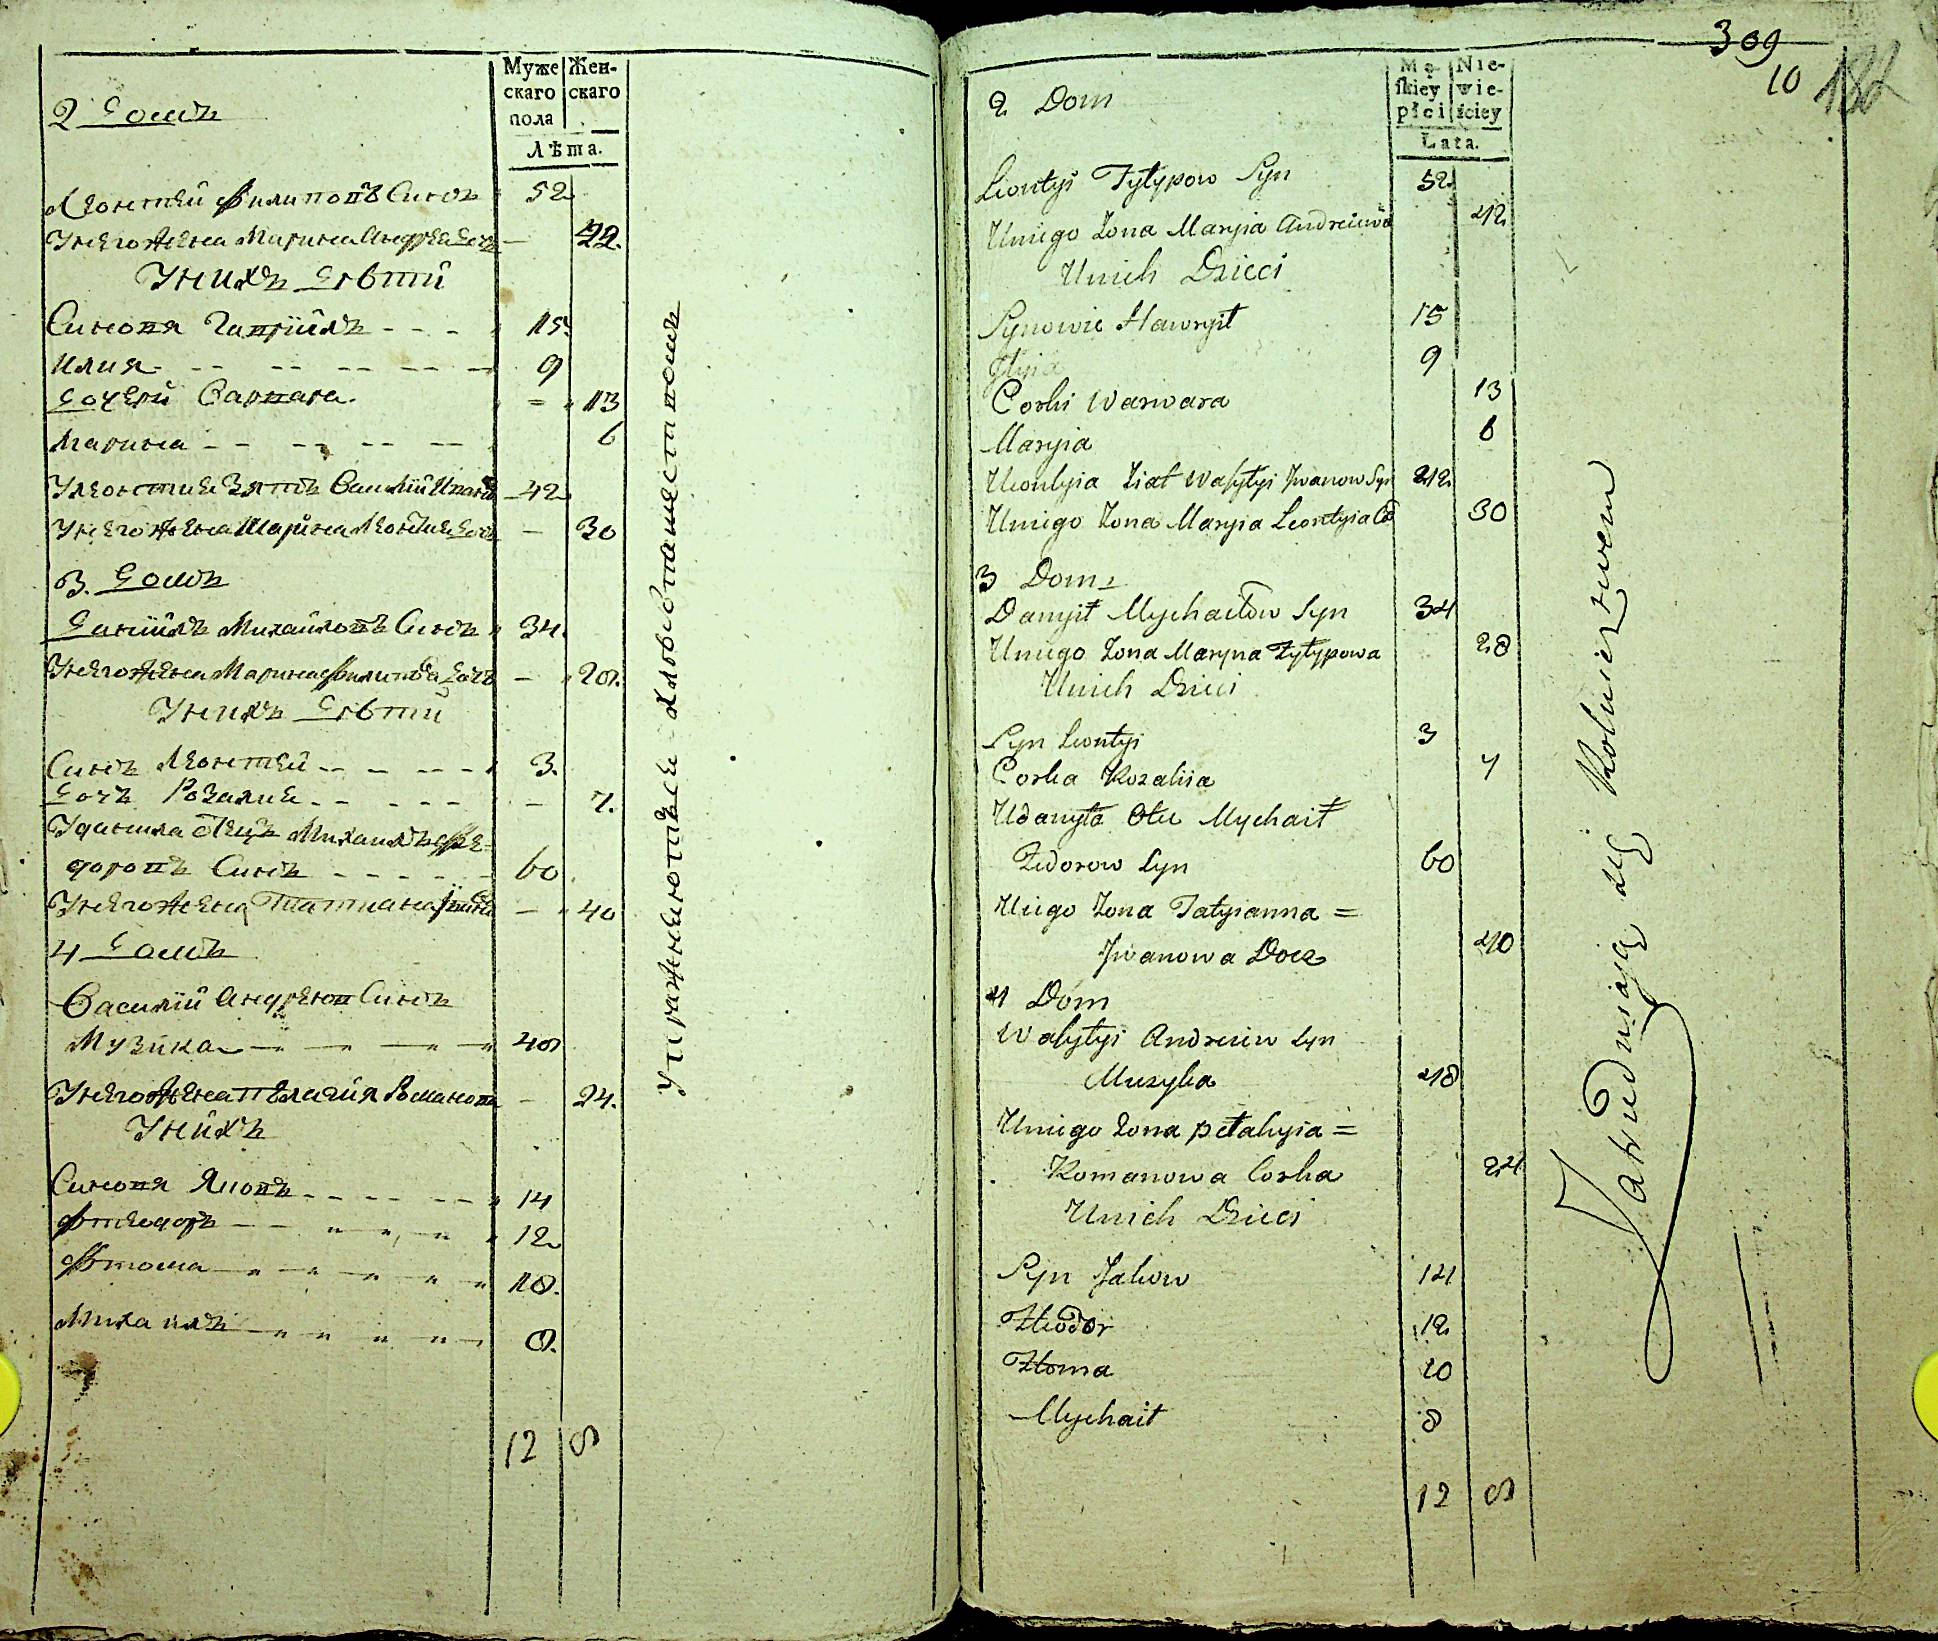 Муже Жен-
скаго скаго
пола
Лѣта.
2 домъ
Леонтей Филиповъ Синъ 52
Унего жена Марина Андреева дочъ — 42.
Унихъ дѣтій
Синовя Гавріилъ - - - 15.
Илия 9
дочери Варвара = 13
Марина 6
У Леонтия Зять Василій Ивановъ 42
Унего жена Марина Леонтиева дочъ — 30
3. домъ
Даніилъ Михайловъ Синъ 34.
Унего жена Марина Филипова дочъ — 28.
Унихъ дѣтій
Синъ Леонтей 3.
дочъ Розалия — 7.
У данила отецъ Михаилъ Фе=
доровъ Синъ 60
Унего жена Татиана Иванова — 40
4 домъ
Василій Андреювъ Синъ
Музика 48
Унего жена Пелагия Романова — 24.
Унихъ
Синовя Яковъ 14
Фтеодоръ 12
Фтома 10.
Михаилъ 8.
12 8
Упражняются Хлѣбопашествомъ
309
10 182
Mę- Nie-
skiey wie-
płci ściey
Lata.
2 Dom
Leontyi Fylypow Syn 52
Uniego Żona Maryia Andreiowa 42
Unich Dzieci
Synowie Hawryił 15
Jlyia 9
Corki Warwara 13
Maryia 6
Uleontyia Ziat Wasylyi Jwanow Syn 42
Uniego Żona Maryia Leontyia Co 30
3 Dom
Danyił Mychaiłow Syn 34
Uniego Żona Maryna Fylypowa 28
Unich Dzieci
Syn Leontyi 3
Corka Rozaliia 7
Udanyła Otec Mychaił
Fedorow Syn 60
Uniego Żona Tatyianna =
Jwanowa Docz 40
4 Dom
Wasylyi Andreiew Syn
Muzyka 48
Uniego Żona pełahyia =
Romanowa Corka 24
Unich Dzieci
Syn Jakow 14
Fteodor 12
Ftoma 10
Mychaił 8
12 8
Zatrudniaią się Rolnictwem